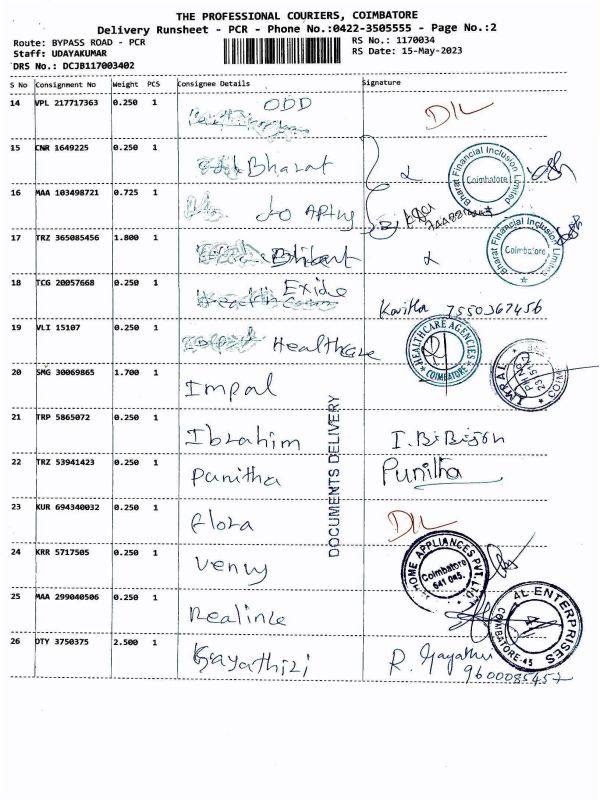 THE PROFESSIONAL COURIERS, COIMBATORE
Delivery Runsheet - PCR - Phone No.:0422-3505555 - Page No.:2
Route: BYPASS ROAD - PCR
RS No.: 1170034
Staff: UDAYAKUMAR
RS Date: 15-May-2023
DRS No.: DCJB117003402
S No Consignment No Weight PCS Consignee Details Signature
14 VPL 217717363 0.250 1 ODD D/L
15 CNR 1649225 0.250 1 Bharat
Bharat Financial Inclusion Limited Coimbatore
16 MAA 103498721 0.725 1
17 TRZ 365085456 1.800 1
Bharat Financial Inclusion Limited Coimbatore
18 TCG 20057668 0.250 1 Exide Kavitha 7550367456
19 VLI 15107 0.250 1 Healthcare
HEALTHCARE AGENCIES COIMBATORE
20 SMG 30069865 1.700 1 Impal
IMPAL
21 TRP 5865072 0.250 1 Ibrahim
22 TRZ 53941423 0.250 1 Punitha Punitha
23 KUR 694340032 0.250 1 Flora D/L
DOCUMENTS DELIVERY
24 KRR 5717505 0.250 1 Venuy
HOME APPLIANCES PVT. LTD Coimbatore 641 045.
25 MAA 299040506 0.250 1
AL-ENTERPRISES COIMBATORE-45
26 DTY 3750375 2.500 1 Gayathiri R. Gayathri
9600085452